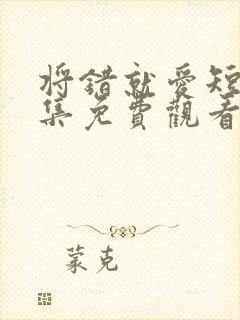 将错就爱短
集免費觀看
蒙克